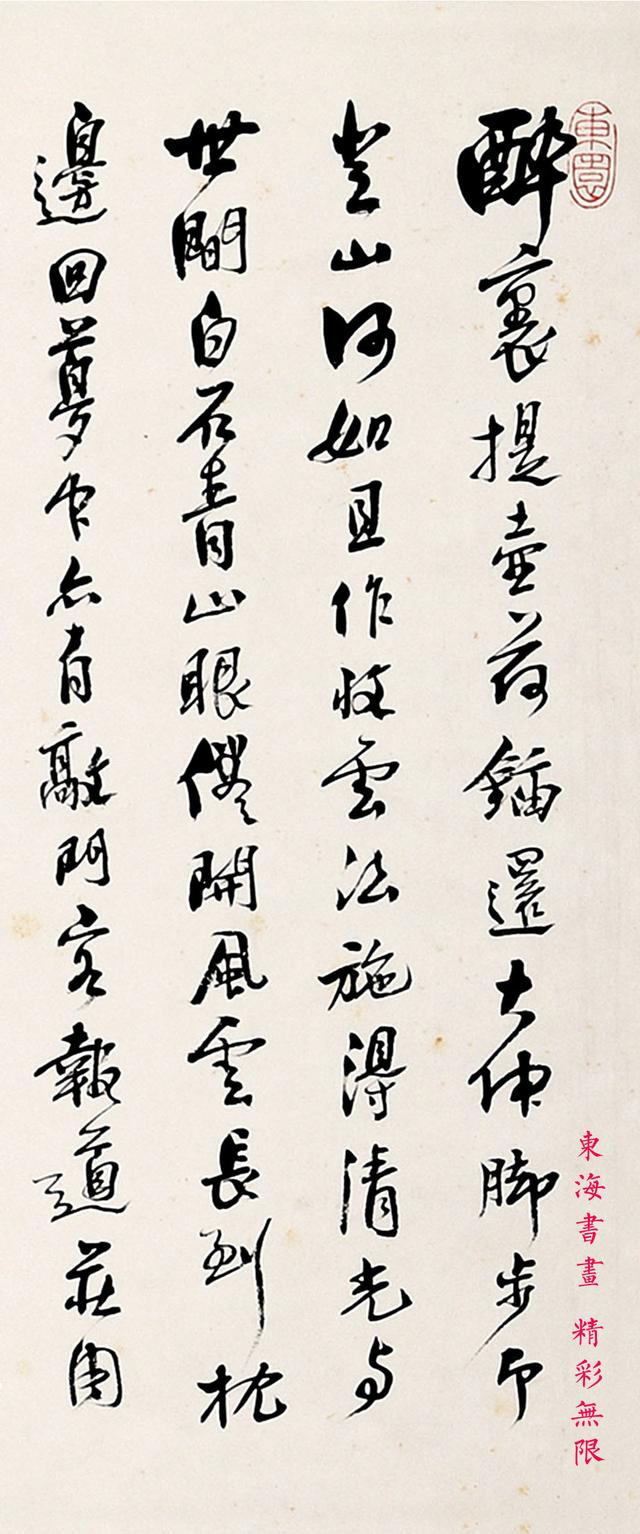 東園
醉裏提壺荷鍤還大伸脚步印
山何如且作收雲法施得清光与
世間白石青山眼儘開風雲長到枕
邊回夢中亦有敲門客報道莊周
東海書畫 精彩無限